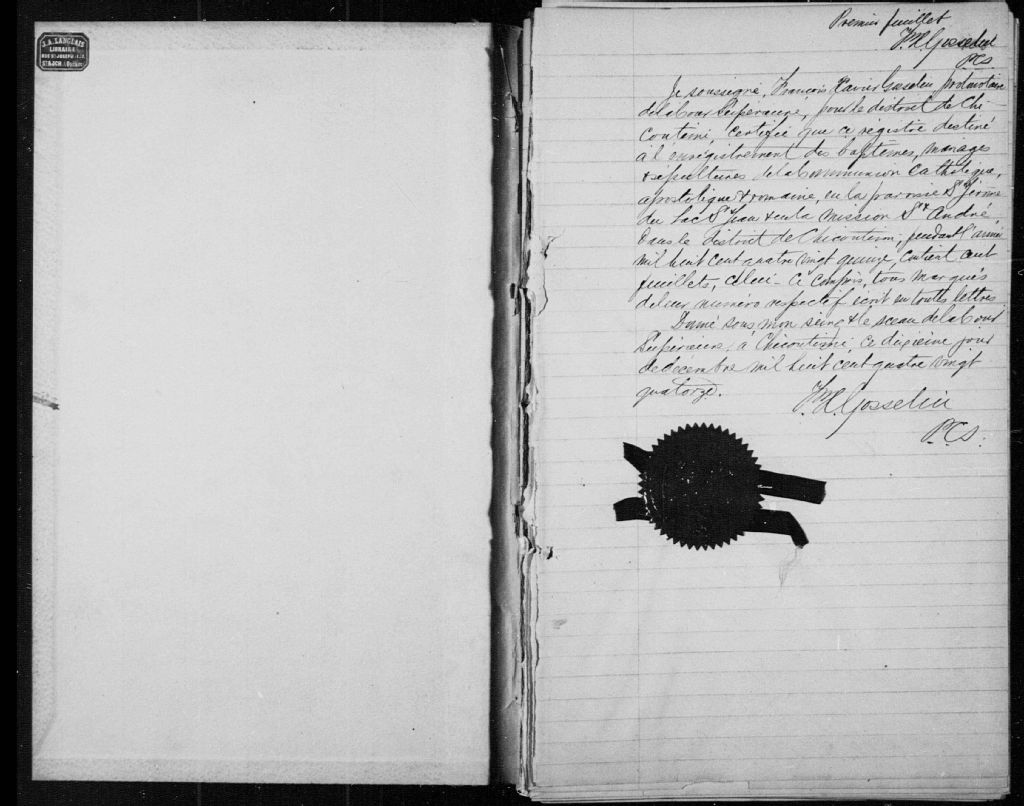 J.A. LANGLAIS
LIBRAIRE
RUE ST JOSEPH
ST ROCH. Québec
Premier feuillet
F.X. Gosselin
P.C.S.
Je soussigné, François Xavier Gosselin, protonotaire
de la Cour Supérieure, pour le district de Chi-
coutimi, certifie que ce régistre destiné
à l'enrégistrement des baptêmes, mariages
& sépultures de la Communion Catholique,
apostolique & romaine, en la paroisse St Jérôme
du Lac St Jean & en la mission St André,
dans le District de Chicoutimi, pendant l'année
mil huit cent quatre vingt quinze, contient cent
feuillets, celui-ci compris, tous marqués
de leur numéro respectif écrit en toutes lettres
Donné sous mon seing & le sceau de la Cour
Supérieure, à Chicoutimi ce dixième jour
de décembre mil huit cent quatre vingt
quatorze.
F.X. Gosselin
P.C.S.